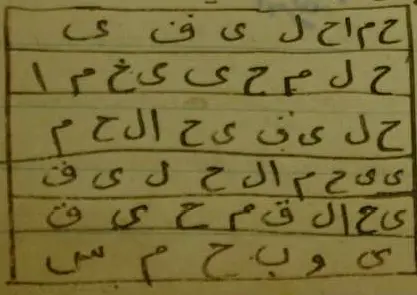 ح م ا ح ل ى ف ى
ح ل م ح ى ى خ م ا
ح ل ى ف ى ح ال ح م
ى ى ح م ال ح ل ى ق
ى ح ال ق م ح ى ق
ى و ب ح م س